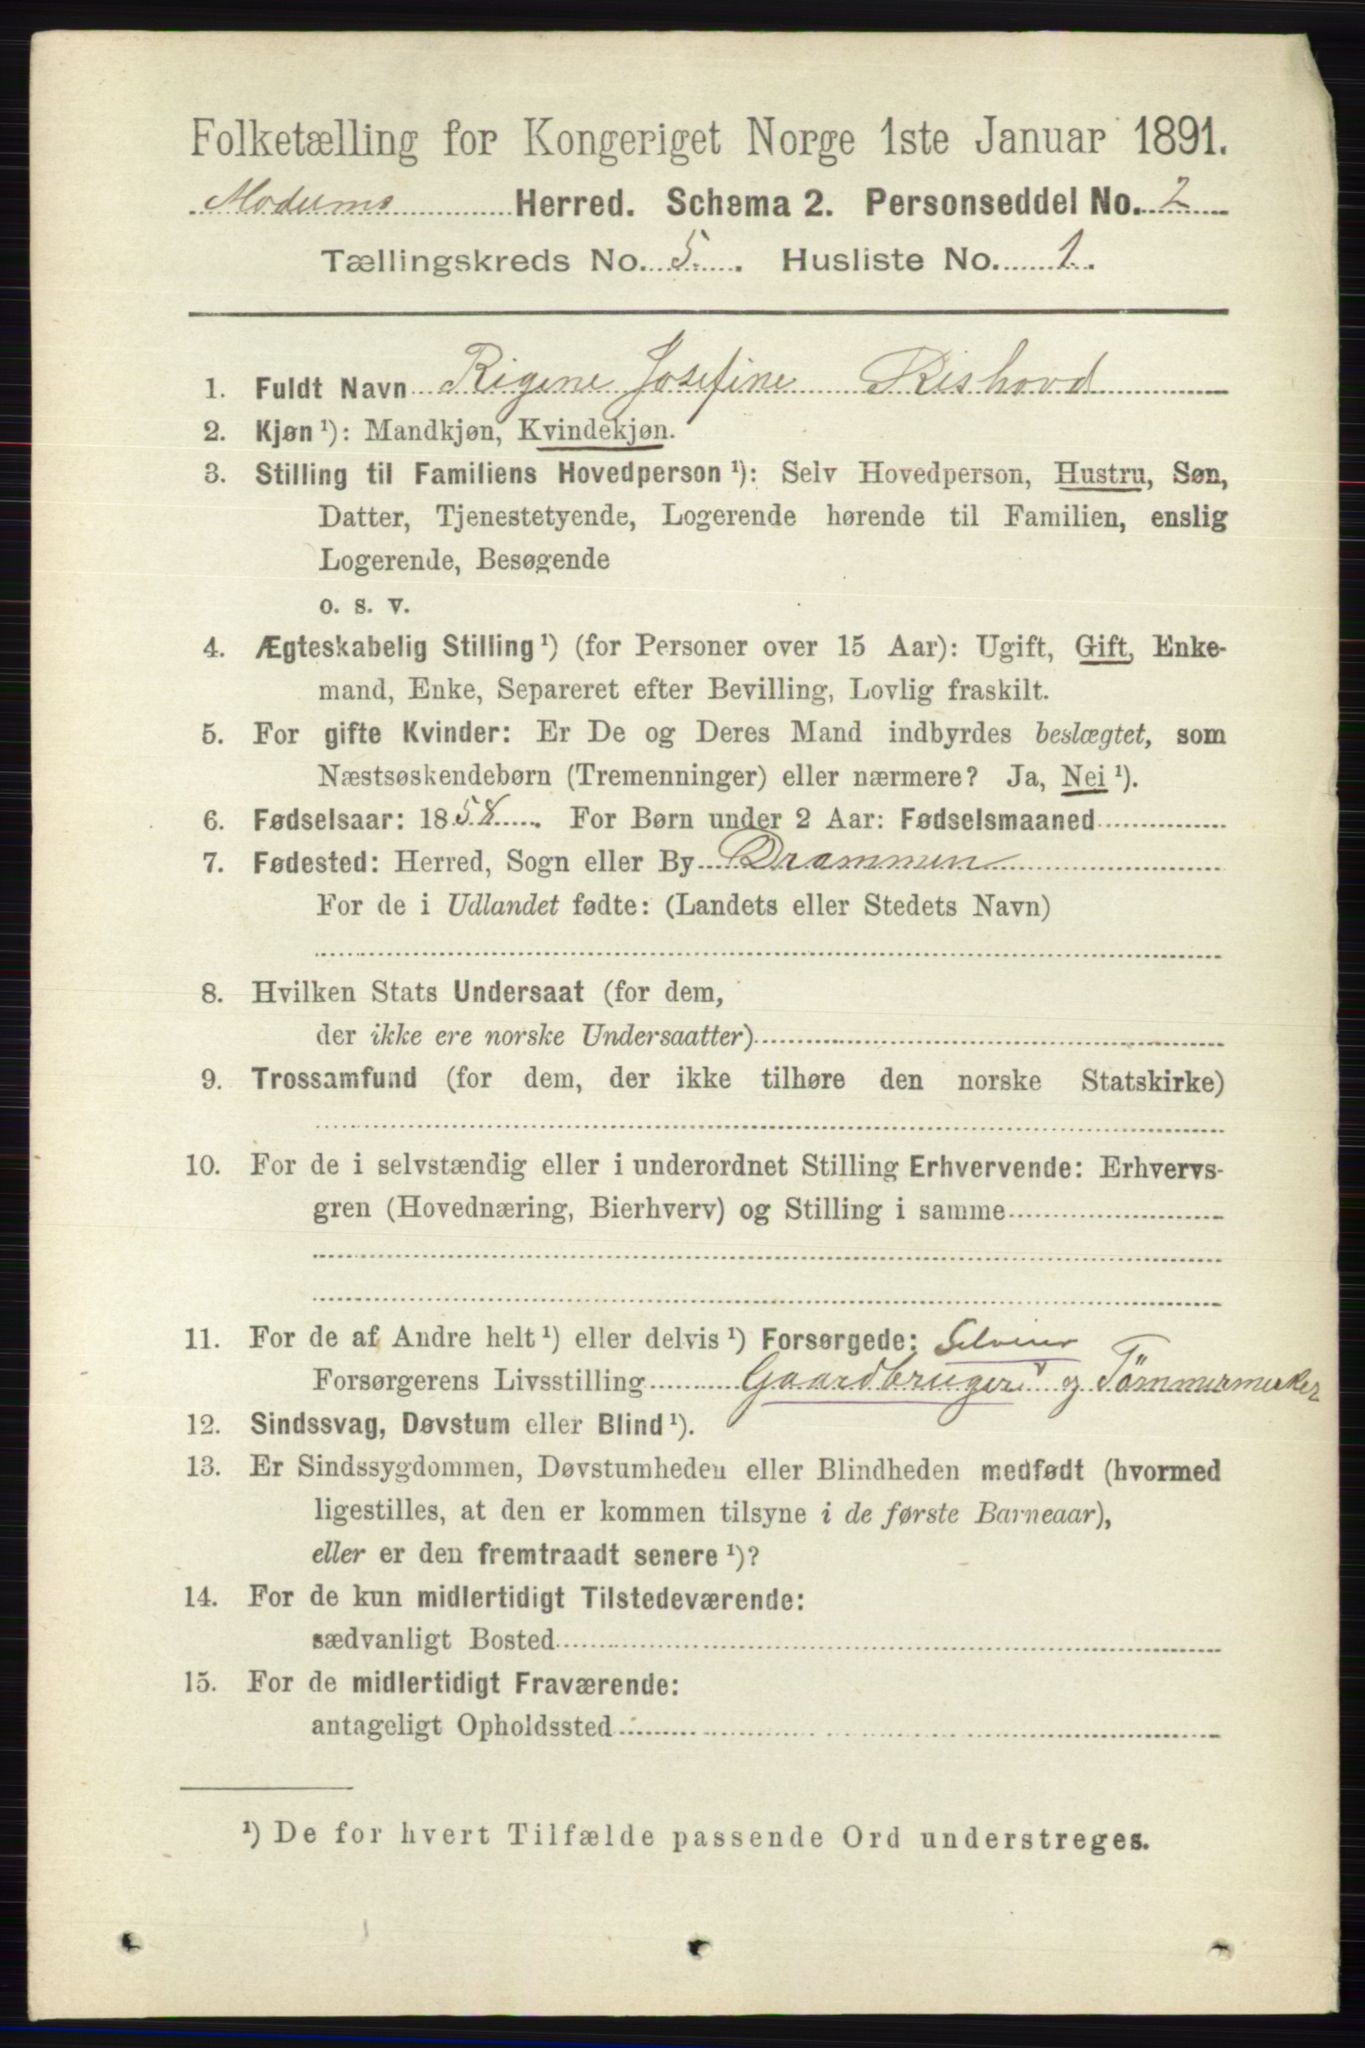 Folketælling for Kongeriget Norge 1ste Januar 1891.
Modums Herred. Schema 2. Personseddel No. 2
Tællingskreds No. 5. Husliste No. 1.
1. Fuldt Navn Rigene Josefine Rishovd
2. Kjøn ¹): Mandkjøn, Kvindekjøn.
3. Stilling til Familiens Hovedperson ¹): Selv Hovedperson, Hustru, Søn,
Datter, Tjenestetyende, Logerende hørende til Familien, enslig
Logerende, Besøgende
o. s. v.
4. Ægteskabelig Stilling ¹) (for Personer over 15 Aar): Ugift, Gift, Enke-
mand, Enke, Separeret efter Bevilling, Lovlig fraskilt.
5. For gifte Kvinder: Er De og Deres Mand indbyrdes beslægtet, som
Næstsøskendebørn (Tremenninger) eller nærmere? Ja, Nei ¹).
6. Fødselsaar: 1858. For Børn under 2 Aar: Fødselsmaaned
7. Fødested: Herred, Sogn eller By Drammen
For de i Udlandet fødte: (Landets eller Stedets Navn)
8. Hvilken Stats Undersaat (for dem,
der ikke ere norske Undersaatter)
9. Trossamfund (for dem, der ikke tilhøre den norske Statskirke)
10. For de i selvstændig eller i underordnet Stilling Erhvervende: Erhvervs-
gren (Hovednæring, Bierhverv) og Stilling i samme
11. For de af Andre helt ¹) eller delvis ¹) Forsørgede: Selveier
Forsørgerens Livsstilling Gaardbruger og Tömmermerker
12. Sindssvag, Døvstum eller Blind ¹).
13. Er Sindssygdommen, Døvstumheden eller Blindheden medfødt (hvormed
ligestilles, at den er kommen tilsyne i de første Barneaar),
eller er den fremtraadt senere ¹)?
14. For de kun midlertidigt Tilstedeværende:
sædvanligt Bosted
15. For de midlertidigt Fraværende:
antageligt Opholdssted
¹) De for hvert Tilfælde passende Ord understreges.